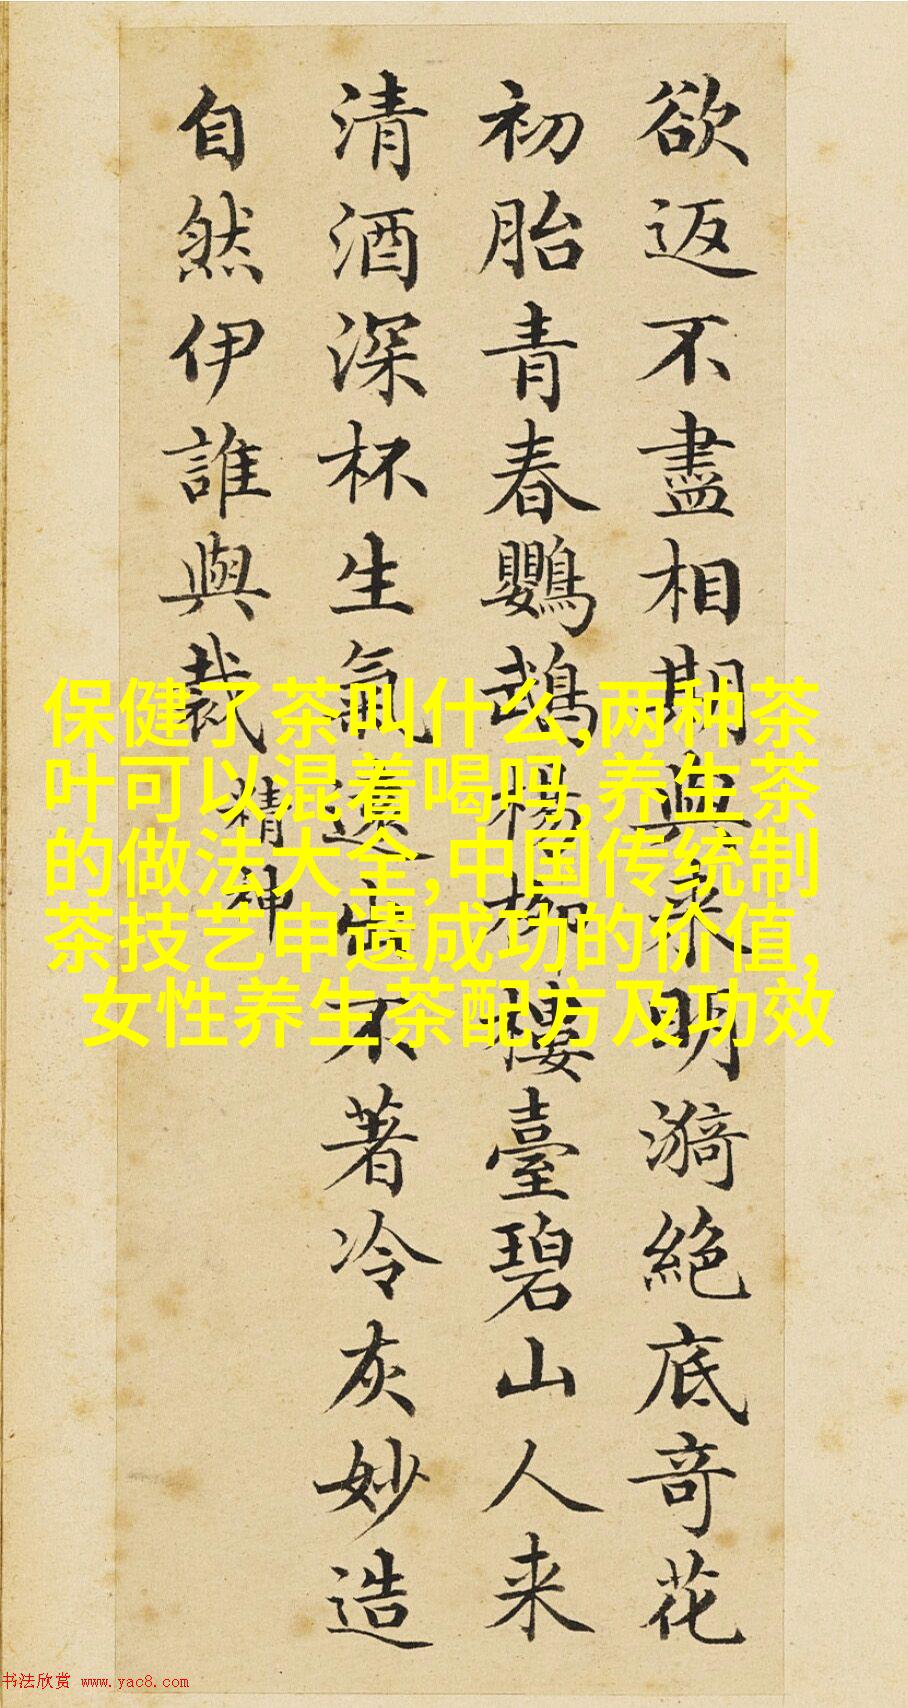 欲返不盡相期與来明漪絕底奇花
初胎青春鸚鵡楊柳樓臺碧山人来
清酒深杯生氣遠出不著冷灰妙造
自然伊誰與裁
精神
保健了茶叫什么,两种茶
叶可以混着喝吗,养生茶
的做法大全,中国传统制
茶技艺申遗成功的价值,
女性养生茶配方及功效
书法欣赏 www.yac8.com